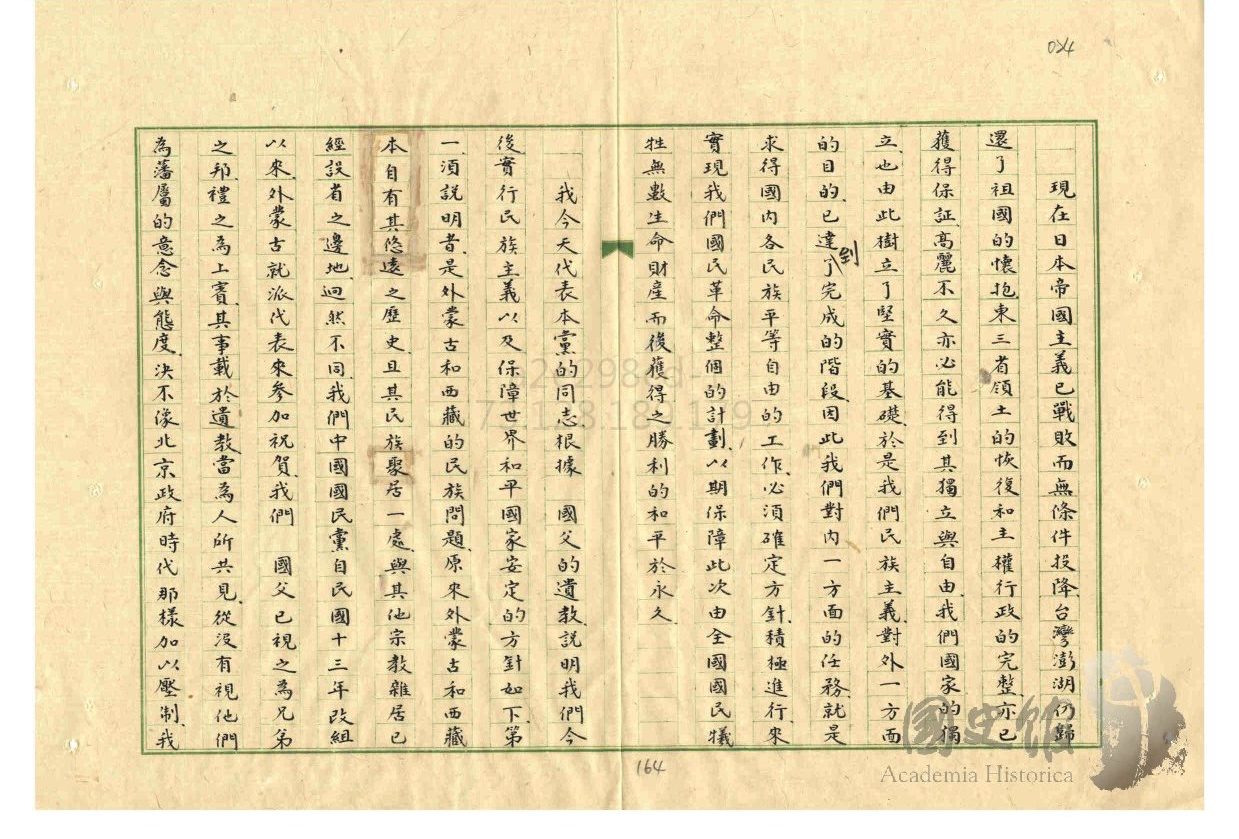 024
現在日本帝國主義已戰敗而無條件投降、台灣澎湖仍歸
還了祖國的懷抱、東三省領土的恢復和主權行政的完整、亦已
獲得保証、高麗不久亦必能得到其獨立與自由、我們國家的獨
立、也由此樹立了堅實的基礎、於是我們民族主義、對外一方面
的目的、已達到了完成的階段、因此我們對內一方面的任務、就是
求得國內各民族平等自由的工作、必須確定方針、積極進行、來
實現我們國民革命整個的計劃、以期保障此次由全國國民犧
牲無數生命財產而後獲得之勝利的和平於永久、
我今天代表本黨的同志根據 國父的遺教、說明我們今
後實行民族主義以及保障世界和平國家安定的方針如下、第
一、須說明者、是外蒙古和西藏的民族問題、原來外蒙古和西藏
本自有其悠遠之歷史、且其民族聚居一處、與其他宗教雜居已
經設省之邊地、迥然不同、我們中國國民黨自民國十三年改組
以來、外蒙古就派代表來參加祝賀、我們 國父已視之為兄弟
之邦、禮之為上賓、其事載於遺教、當為人所共見、從沒有視他們
為藩屬的意念與態度、決不像北京政府時代那樣加以壓制、我
164
國史館
Academia Historica